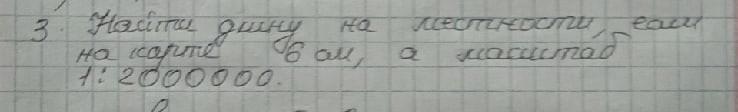 3. Найти длину на местности, если
на карте 6 см, а масштаб
1:2000000.